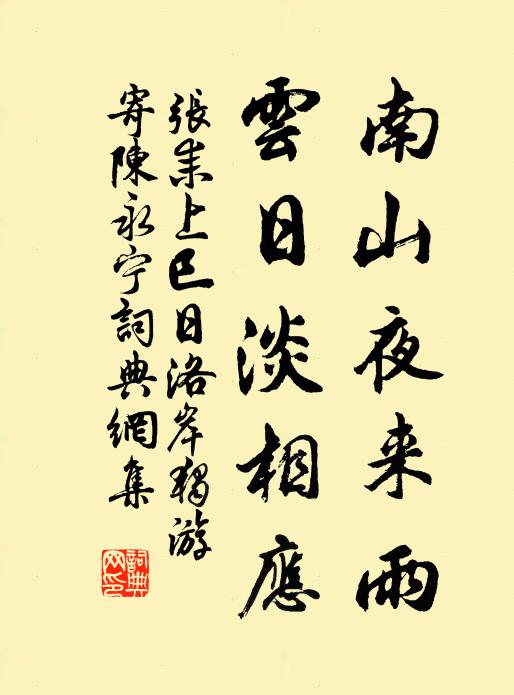 南山夜来雨
雲日淡相應
張耒上巳日洛岸獨游
寄陳永宁詞典網集
詞典
网印